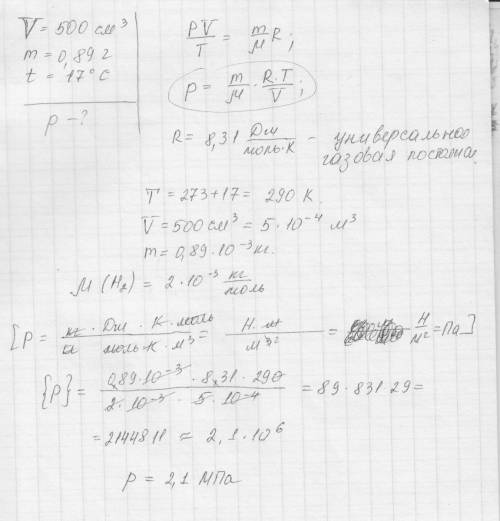 V = 500 см³
m = 0,89 г
t = 17°C
p - ?
PV/T = m/M R;
P = m/M · R·T/V;
R = 8,31 Дж/моль·К - универсальная газовая постоян.
T = 273+17 = 290 К.
V = 500 см³ = 5·10⁻⁴ м³
m = 0,89·10⁻³ кг.
M (H₂) = 2·10⁻³ кг/моль
[P = кг · Дж · К · моль / кг моль·К·м³ = Н·м / м³ = Н/м² = Па]
{P} = 0,89·10⁻³ · 8,31 · 290 / 2·10⁻³ · 5·10⁻⁴ = 89·831·29 =
= 2144811 ≈ 2,1·10⁶
P = 2,1 МПа